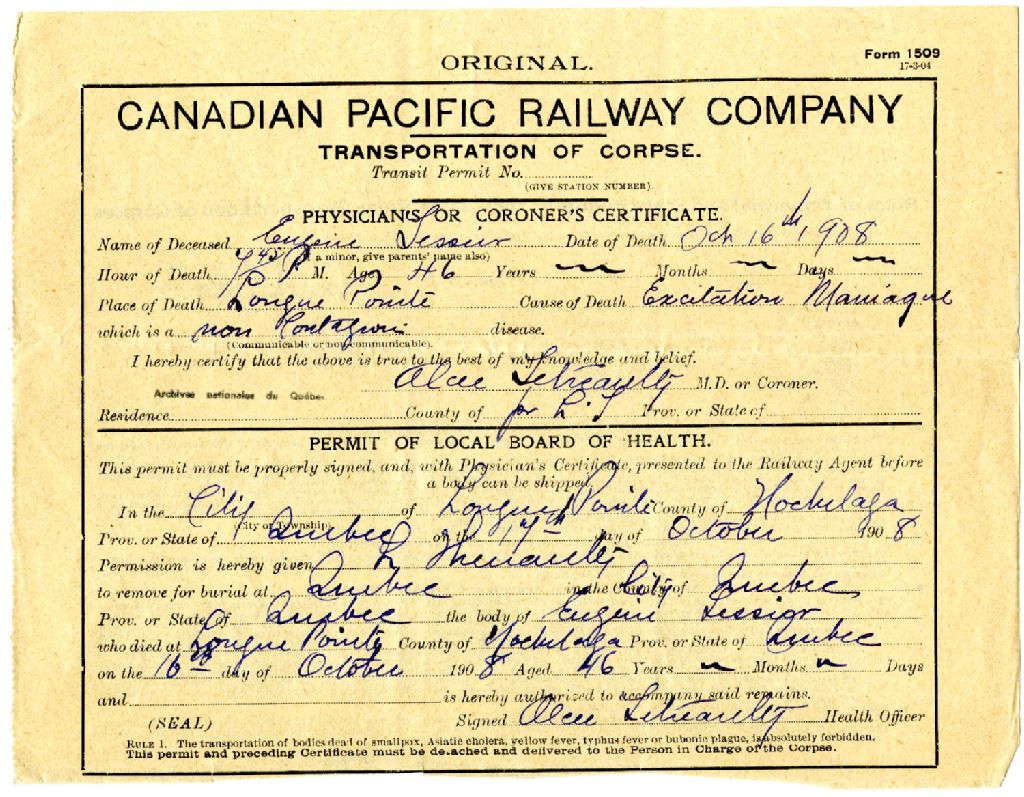 ORIGINAL.
Form 1509
17-3-04
CANADIAN PACIFIC RAILWAY COMPANY
TRANSPORTATION OF CORPSE.
Transit Permit No.
(GIVE STATION NUMBER).
PHYSICIAN'S OR CORONER'S CERTIFICATE.
Name of Deceased Eugène Lessier Date of Death Oct 16th 1908
(If a minor, give parents' name also)
Hour of Death 7 45 P M. Age 46 Years Months Days
Place of Death Longue Pointe Cause of Death Excitation Maniaque
which is a non Contagious disease.
(Communicable or non-communicable).
I hereby certify that the above is true to the best of my knowledge and belief.
M.D. or Coroner.
Archives nationales du Québec
Residence County of Prov. or State of
PERMIT OF LOCAL BOARD OF HEALTH.
This permit must be properly signed, and, with Physician's Certificate, presented to the Railway Agent before
a body can be shipped.
In the City of Longue Pointe County of Hochelaga
(City or Township)
Prov. or State of Quebec on the 17th day of October 1908
Permission is hereby given
to remove for burial at Quebec in the County of City Quebec
Prov. or State of Quebec the body of Eugène Lessior
who died at Longue Pointe County of Hochelaga Prov. or State of Quebec
on the 16th day of October 1908 Aged 46 Years Months Days
and is hereby authorized to accompany said remains.
(SEAL) Signed Health Officer
RULE 1. The transportation of bodies dead of smallpox, Asiatic cholera, yellow fever, typhus fever or bubonic plague, is absolutely forbidden.
This permit and preceding Certificate must be detached and delivered to the Person in Charge of the Corpse.